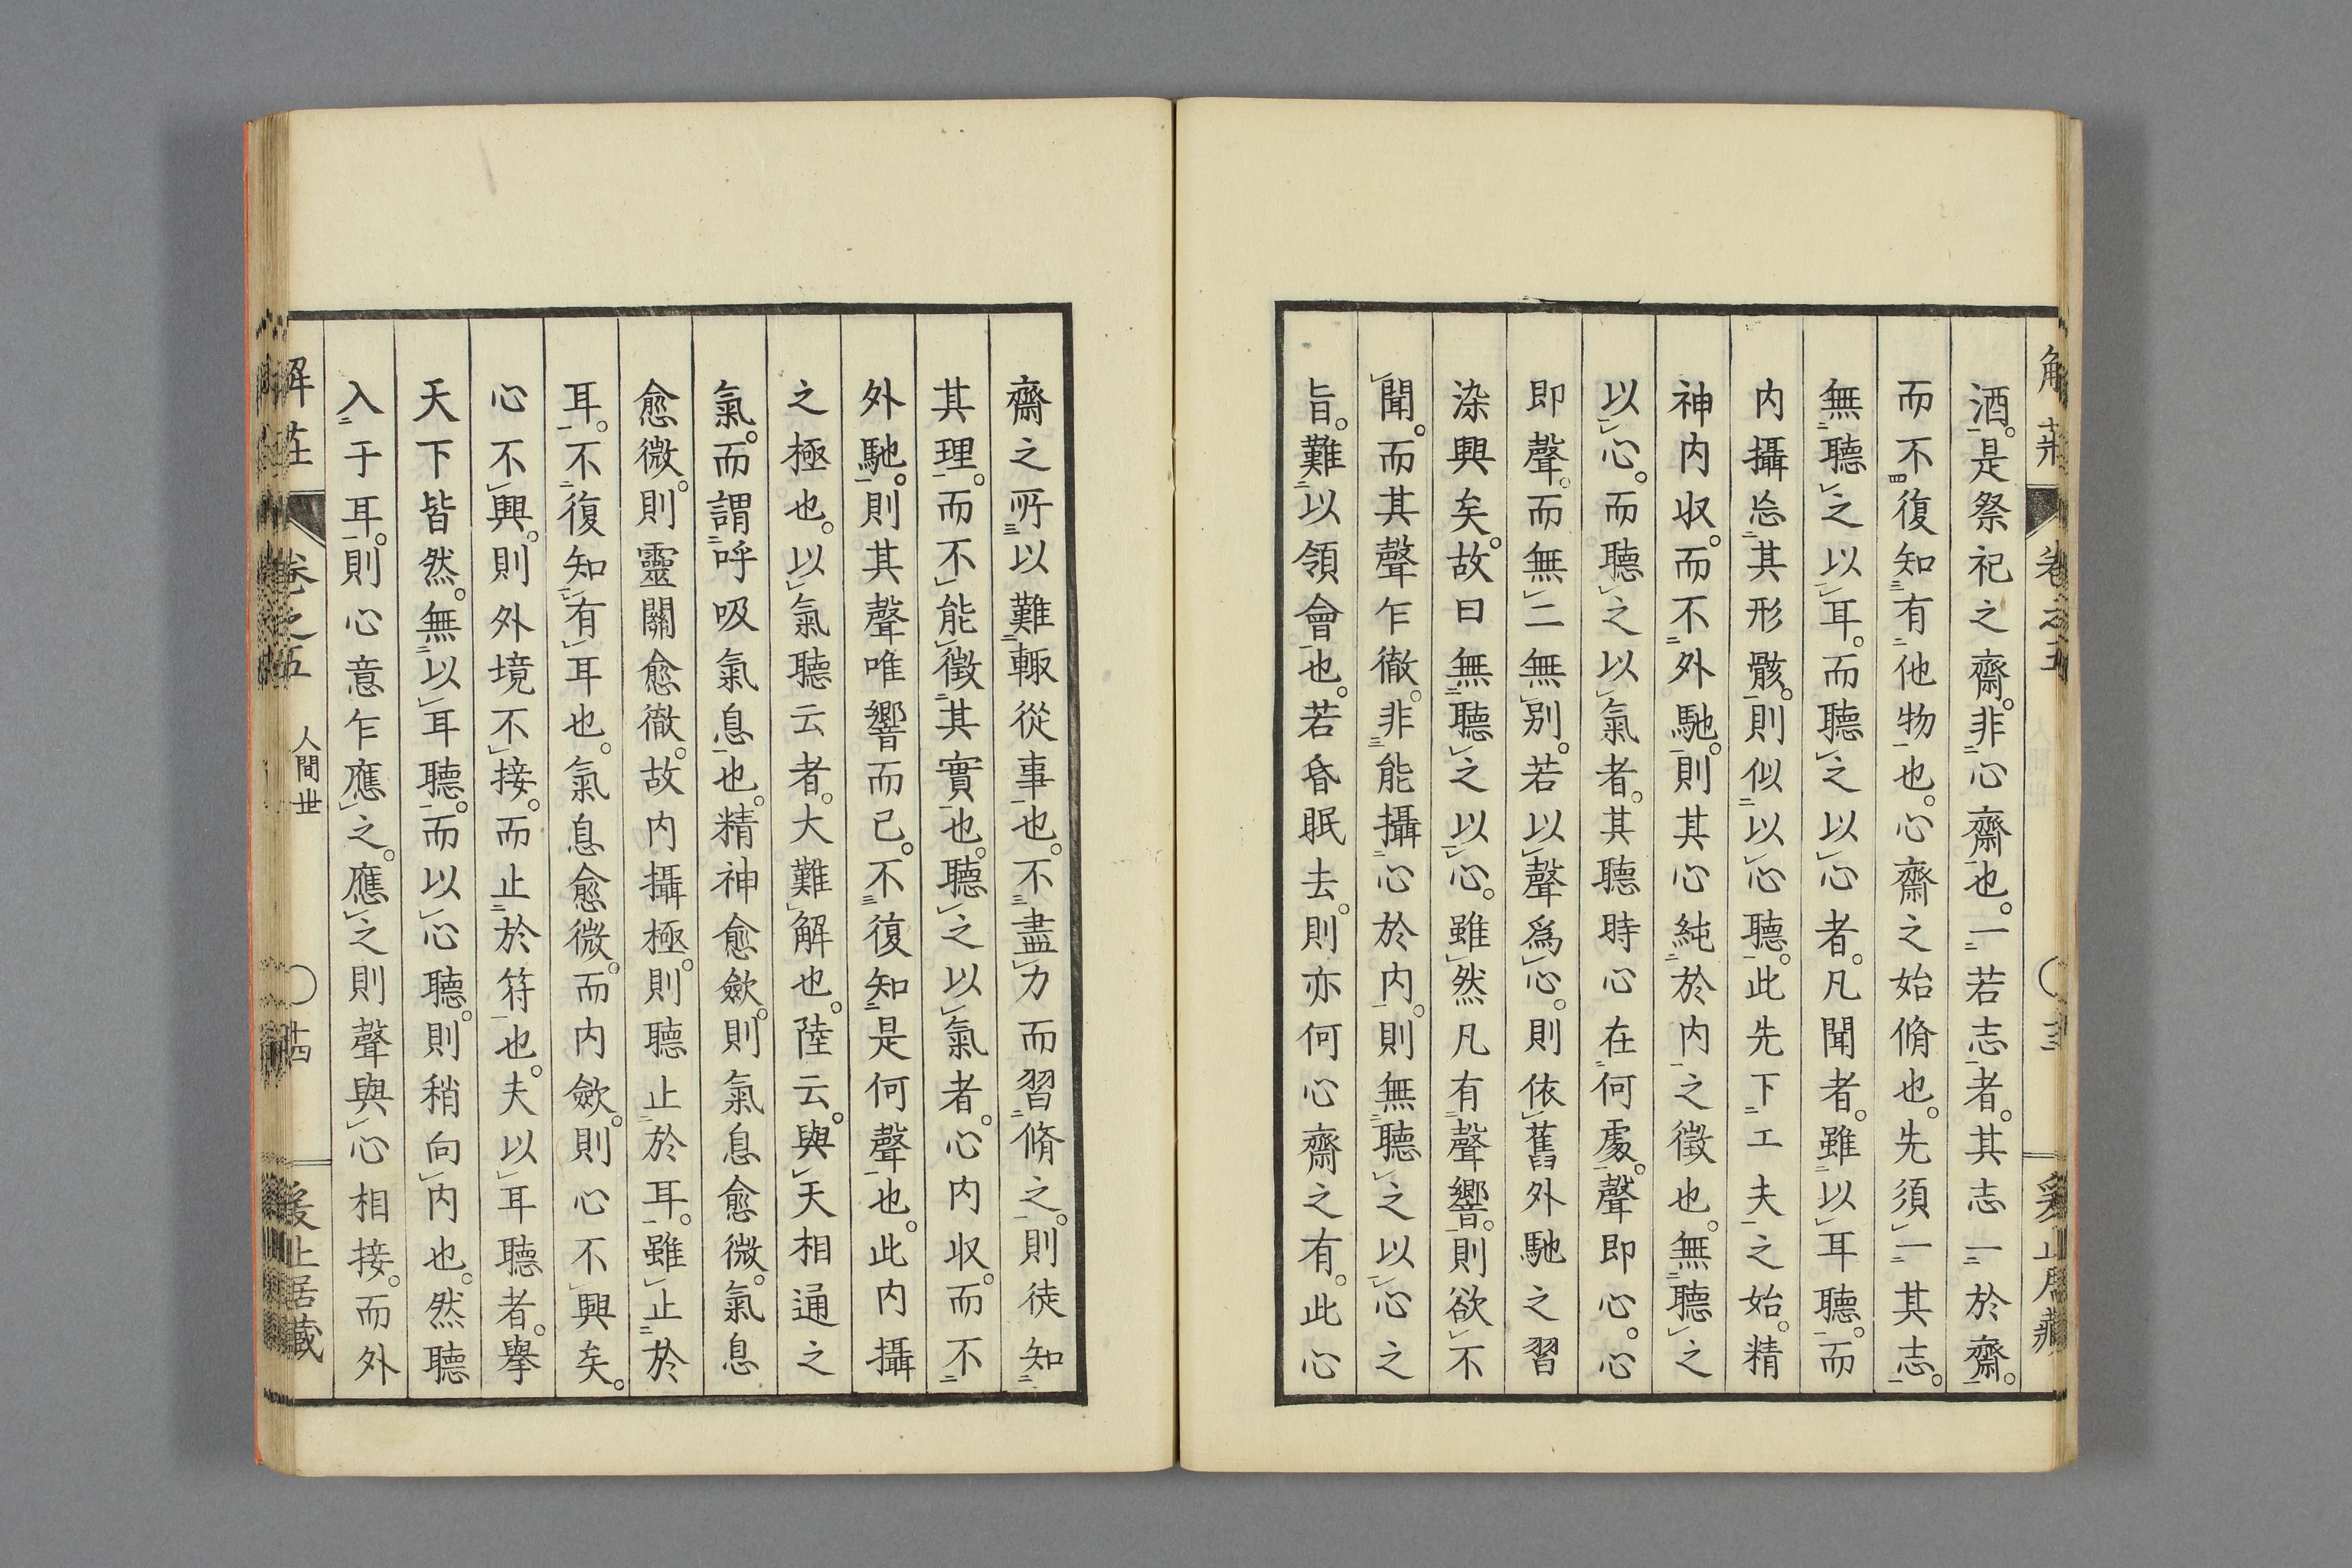 解莊 卷之五 〇 三 爰止居藏
酒。是祭祀之齋。非心齋也。一若志者。其志一於齋。
而不復知有他物也。心齋之始脩也。先須一其志。
無聽之以耳。而聽之以心者。凡聞者。雖以耳聽。而
内攝忘其形骸。則似以心聽。此先下工夫之始。精
神内収。而不外馳。則其心純於内之徵也。無聽之
以心。而聽之以氣者。其聽時心在何處。聲即心。心
即聲。而無二無別。若以聲爲心。則依舊外馳之習
染興矣。故曰無聽之以心。雖然凡有聲響。則欲不
聞。而其聲乍徹。非能攝心於内。則無聽之以心之
旨。難以領會也。若昏眠去。則亦何心齋之有。此心
齋之所以難輙從事也。不盡力而習脩之。則徒知
其理。而不能徵其實也。聽之以氣者。心内収。而不
外馳。則其聲唯響而已。不復知是何聲也。此内攝
之極也。以氣聽云者。大難解也。陸云。與天相通之
氣。而謂呼吸氣息也。精神愈斂。則氣息愈微。氣息
愈微。則靈關愈徹。故内攝極。則聽止於耳。雖止於
耳。不復知有耳也。氣息愈微。而内斂。則心不興矣。
心不興。則外境不接。而止於符也。夫以耳聽者。擧
天下皆然。無以耳聽。而以心聽。則稍向内也。然聽
入于耳。則心意乍應之。應之則聲與心相接。而外
解莊 卷之五 人間世 〇 十四 爰止居藏